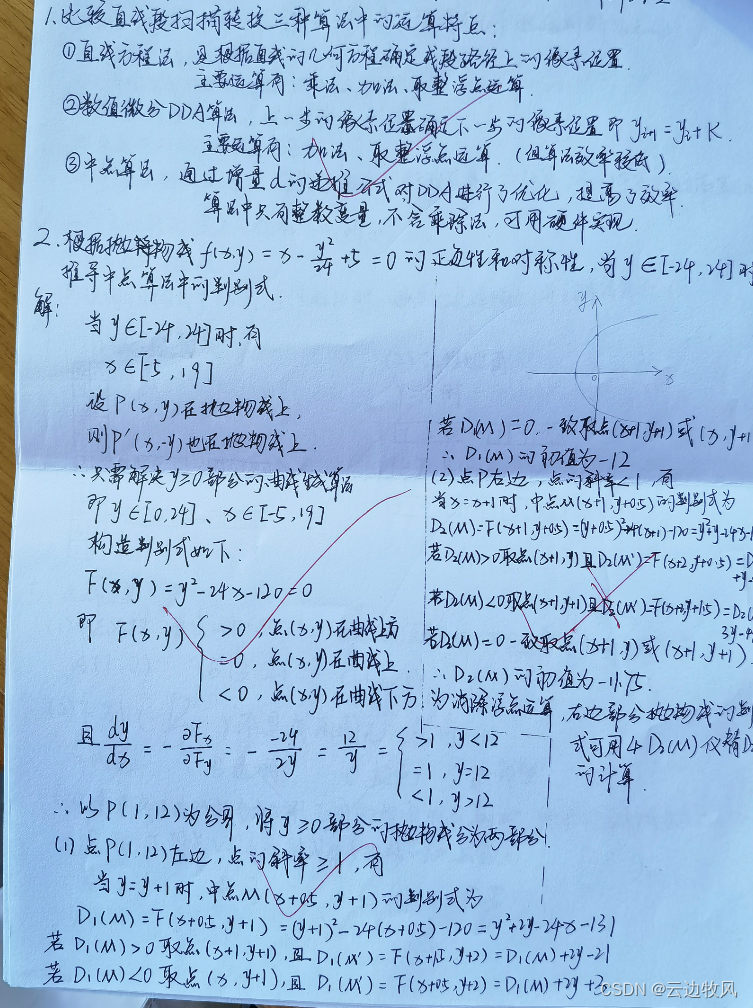 1.比较直线段扫描转换三种算法中的运算特点:
①直线方程法,是根据直线的几何方程确定线段路径上的像素位置.
主要运算有:乘法、加法、取整浮点运算.
②数值微分DDA算法,上一步的像素位置确定下一步的像素位置即 yi+1=yi+K.
主要运算有:加法、取整浮点运算.(但算法效率较低)
③中点算法,通过增量d的递推方式对DDA进行了优化,提高了效率.
算法中只有整数变量,不含乘除法,可用硬件实现.
2.根据抛物线f(x,y)=x-y²/24+5=0的正负性和对称性,当y∈[-24,24]时
推导中点算法中的判别式.
解:
当y∈[-24,24]时,有
x∈[-5,19]
设P(x,y)在抛物线上,
则P'(x,-y)也在抛物线上.
∴只需解决y≥0部分的曲线生成算法
即y∈[0,24]、x∈[-5,19]
构造判别式如下:
F(x,y)=y²-24x-120=0
即 F(x,y) { >0,点(x,y)在曲线上方
=0,点(x,y)在曲线上.
<0,点(x,y)在曲线下方
且 dy/dx = - ∂Fx/∂Fy = - -24/2y = 12/y = { >1,y<12
=1,y=12
<1,y>12
∴以P(1,12)为分界,将y≥0部分的抛物线分为两部分.
(1)点P(1,12)左边,点的斜率≥1,有
当y=y+1时,中点M(x+0.5,y+1)的判别式为
D1(M)=F(x+0.5,y+1)=(y+1)²-24(x+0.5)-120=y²+2y-24x-131
若D1(M)>0取点(x+1,y+1),且D1(M')=F(x+1.5,y+2)=D1(M)+2y-21
若D1(M)<0取点(x,y+1),且D1(M')=F(x+0.5,y+2)=D1(M)+2y+3
y
x
0
若D1(M)=0,一致取点(x+1,y+1)或(x,y+1
∴D1(M)的初值为-12
(2)点P右边,点的斜率<1,有
当x=x+1时,中点M(x+1,y+0.5)的判别式为
D2(M)=F(x+1,y+0.5)=(y+0.5)²-24(x+1)-120=y²+y-24x-1
若D2(M)>0取点(x+1,y)且D2(M')=F(x+2,y+0.5)=D
若D2(M)<0取点(x+1,y+1)且D2(M')=F(x+2,y+1.5)=D2
若D2(M)=0一致取点(x+1,y)或(x+1,y+1)
∴D2(M)的初值为-11.75.
为消除浮点运算,右边部分抛物线的判
式可用4D2(M)代替D
的计算.
CSDN @云边牧风